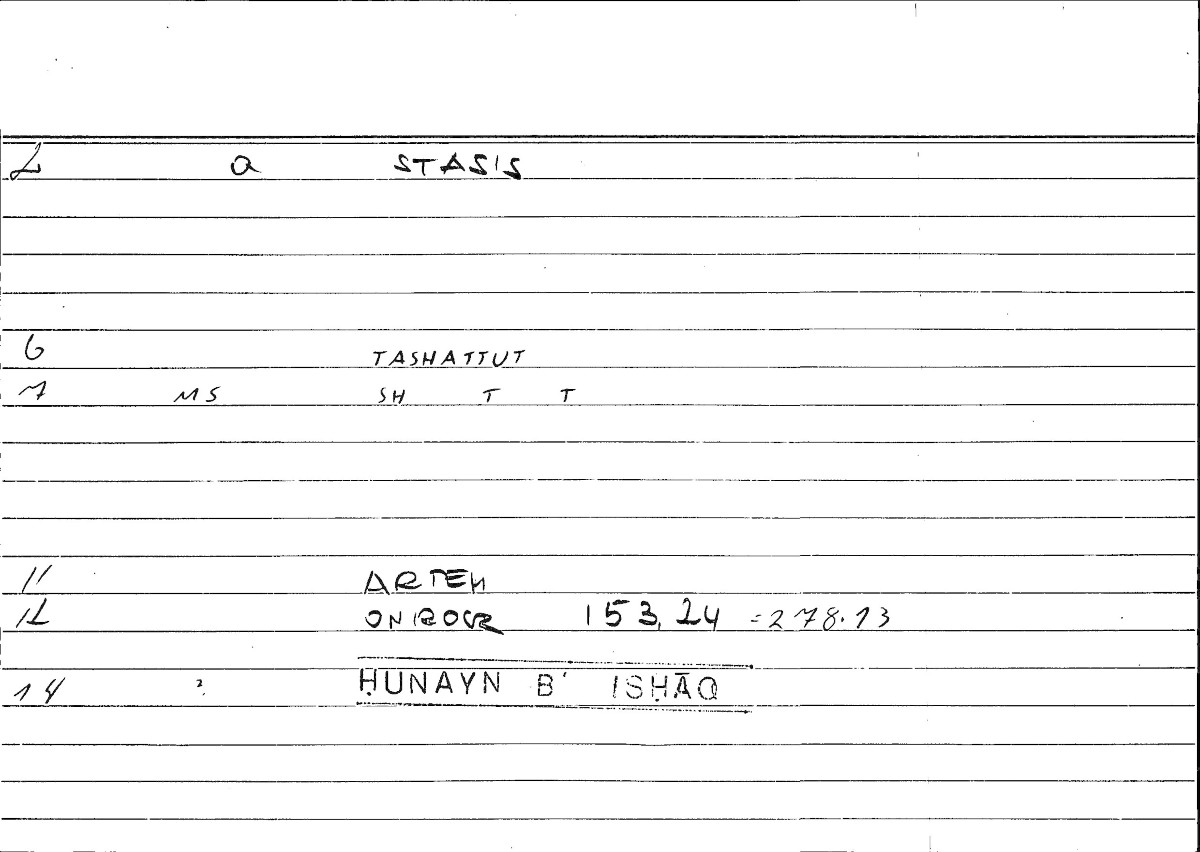 2 a STASIS
6 TASHATTUT
7 MS SH T T
11 ARTEM
12 ONIROCR 153,24 =278.13
14 2. ḤUNAYN B' ISḤĀQ